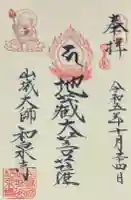 奉拝
令和五年十月十四日
地蔵大菩薩
山城大師 和泉寺